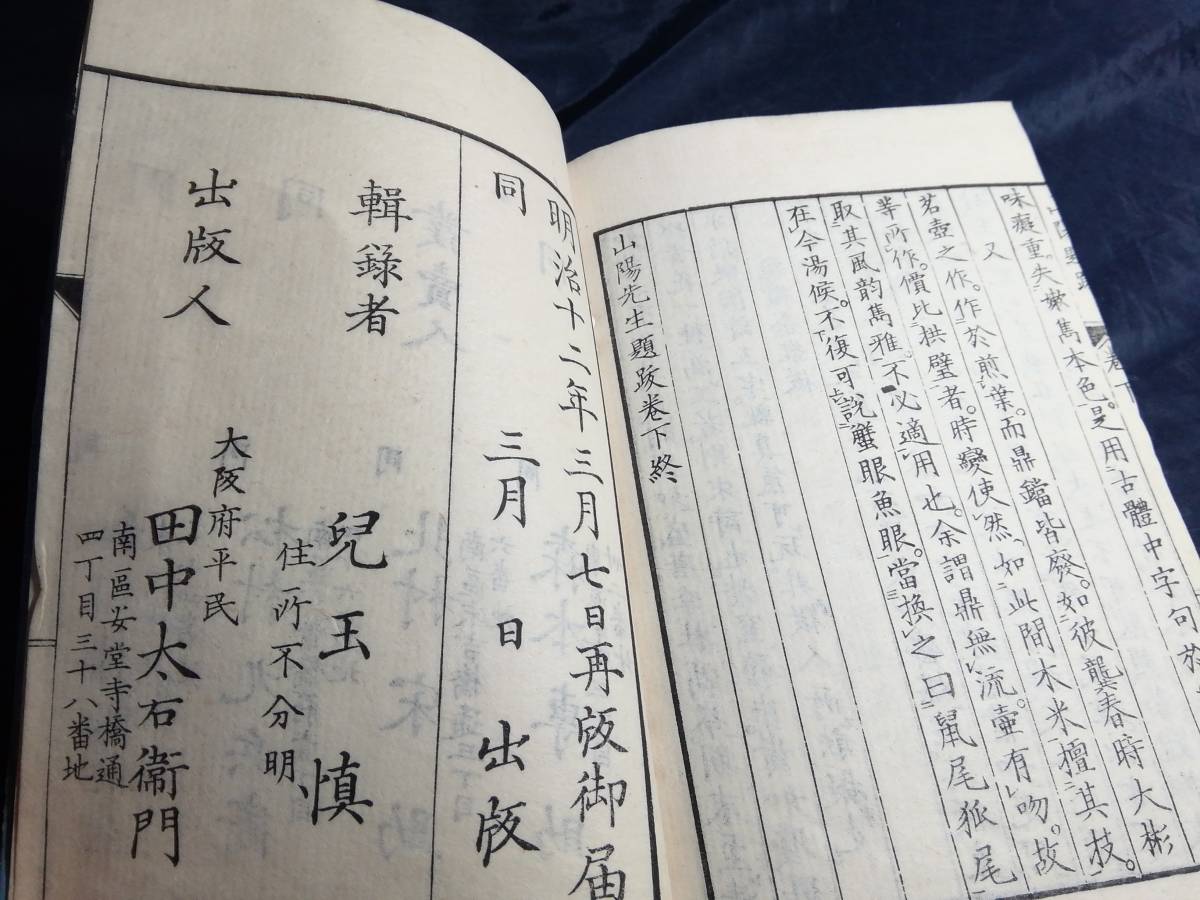 卷下
味癡重。失嫰雋本色。是用古體中字句於
又
茗壺之作。作於煎葉。而鼎鐺皆發。如彼龔春時大彬
等所作。價比拱璧者。時變使然。如此間木米擅其技。
取其風韵雋雅。不必適用也。余謂鼎無流。壷有吻。故
在今湯候。不復可說蟹眼魚眼。當換之曰鼠尾狐尾
山陽先生題跋卷下終
明治十二年三月七日再版御届
同 三月 日 出版
輯錄者 兒玉慎
住所不分明、
大阪府平民
出版人 田中太右衞門
南區安堂寺橋通
四丁目三十八番地